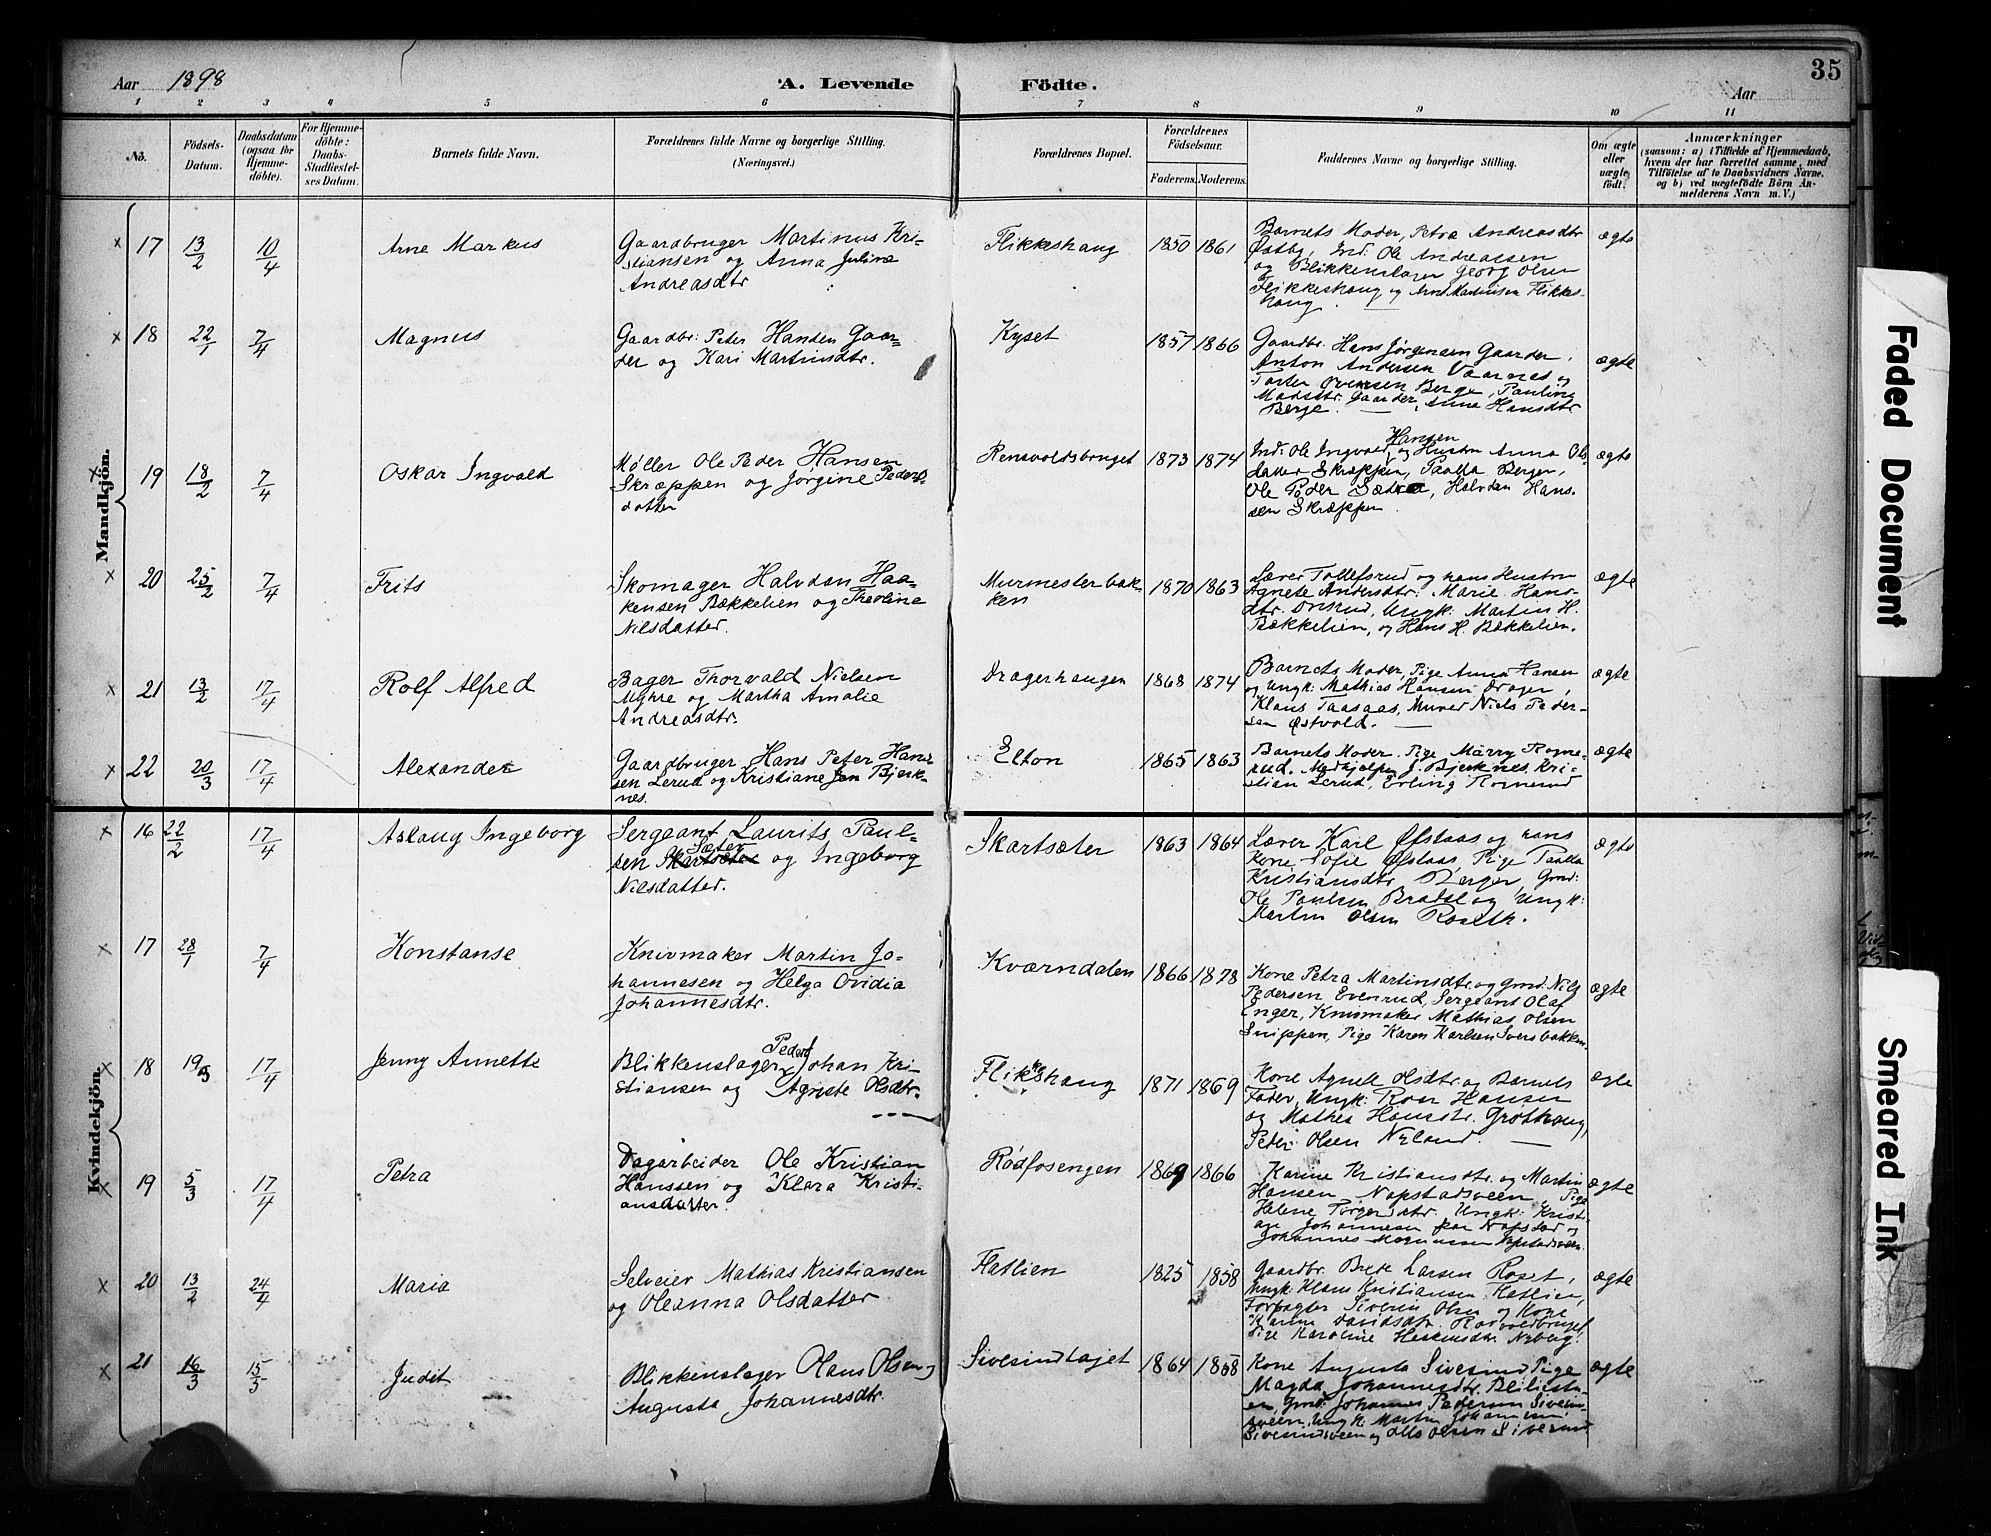 Aar 1898
'A. Levende Födte.
Aar
35
1 2 3 4 5 6 7 8 9 10 11
No.
Födsels-Datum.
Daabsdatum (ogsaa for Hjemme-döbte).
For Hjemme-döbte: Daabs-Stadfæstel-ses Datum.
Barnets fulde Navn.
Forældrenes fulde Navne og borgerlige Stilling. (Næringsvei.)
Forældrenes Bopæl.
Forældrenes Födselsaar.
Faderens. Moderens.
Faddernes Navne og borgerlige Stilling.
Om ægte eller uægte född.
Anmærkninger
(saasom: a) i Tilfælde af Hjemmedaab,
hvem der har forrettet samme, med
Tilföielse af to Daabsvidners Navne.
og b) ved uægtefödte Börn An-
melderens Navn m. V.)
Mandkjön.
17 13/2 10/4 Arne Markus
Gaardbruger Martinus Kri-
stiansen og Anna Juline
Andreasdtr
Flikkeshaug 1850 1861
Barnets Moder, Petra Andreasdtr
Østby, Ind. Ole Andreassen
og Blikkenslager Georg Olsen
Flikkeshaug og Arne Martinsen Flikkes-
haug
ægte
18 22/1 7/4 Magnus
Gaardbr: Peter Hansen Gaar-
der og Kari Martinsdtr.
Kyset 1857 1866
Gaardbr. Hans Jørgensen Gaarder,
Anton Andersen Vaarnes og
Torter Evensen Berge, Pauline
Madsdtr. Gaarder, Anna Hansdtr
Berge.
ægte
19 18/2 7/4 Oskar Ingvald
Møller Ole Peder Hansen
Skræppen og Jørgine Peders-
datter
Rensvoldsbruget 1873 1874
Ind: Ole Ingvald Hansen og Hustru Anna Ols-
datter Skræppen, Paalla Berger,
Ole Peder Sætre, Halvdan Hans-
sen Skræppen.
ægte
20 25/2 7/4 Frits
Skomager Halvdan Haa-
kensen Bækkelien og Theoline
Nilsdatter.
Murmesterbak-
ken 1870 1863
Lærer Tollefsrud og hans Hustru
Agnete Andersdtr: Marie Hans-
dtr. Onsrud, Ungk: Martin H.
Bækkelien, og Hans H. Bækkelien.
ægte
21 13/2 17/4 Rolf Alfred
Bager Thorvald Nielsen
Myhre og Martha Amalie
Andreasdtr.
Dragerhaugen 1868 1874
Barnets Moder, Pige Anna Hansen
og Ungk: Mathias Hansen Drager,
Klaus Taasaas, Murer Niels Peder-
sen Østvold.
ægte
22 20/3 17/4 Alexander
Gaardbruger Hans Peter Han-
sen Lerud og Kristiane Jen Bjerk-
nes.
Elton 1865 1863
Barnets Moder. Pige Marry Rogne-
rud. Medhjelper J. Bjerknes, Kri-
stian Lerud, Erling Rognerud
ægte
Kvindekjön.
16 22/2 17/4 Aslaug Ingeborg
Sergeant Laurits Paul-
sen Sæter og Ingeborg
Nilsdatter.
Skartsæter 1863 1864
Lærer Karl Øfstaas og hans
Kone Sofie Øfstaas, Pige Paalla
Kristiansdtr Berger, Gmd:
Ole Paulsen Bratsl og Ungk:
Martin Olsen Roseth.
ægte
17 28/1 7/4 Konstanse
Knivmaker Martin Jo-
hannesen og Helga Ovidia
Johannesdtr.
Kværndalen 1866 1878
Kone Petra Martinsdtr. og Gmd. Nils
Pedersen Evenrud, Sergeant Olaf
Enger, Knivmaker Mathias Olsen
Snippen, Pige Karen Karlsen Sversbakken
ægte
18 19/3 17/4 Jenny Annette
Blikkenslager Peder Johan Kri-
stiansen og Agnete Olsdtr.
Flikkeshaug 1871 1869
Kone Agnete Olsdtr og Barnets
Fader, Ungk: Roar Hansen
og Mathea Hansdtr. Grøthaug,
Peder Olsen Nyland.
ægte
19 5/3 17/4 Petra
Dagarbeider Ole Kristian
Hanssen og Klara Kristi-
ansdatter.
Rødfosengen 1869 1866
Karine Kristiansdtr. og Martin
Hansen Napstadsveen, Pige
Helene Torgersdtr. Ungk: Kristi-
an Johannesen paa Napstad og
Johannes Magnussen Napstadsveen.
ægte
20 13/2 24/4 Maria
Selveier Mathias Kristiansen
og Oleanna Olsdatter
Flatlien 1825 1858
Gaardbr. Brede Larsen Roset,
Ungk: Klaus Kristiansen Flatlien,
Forpagter Siverin Olsen og Kone
Karine Davidsdtr. Rosvoldbruget,
Pige Karoline Heskensdtr. Nyberg.
ægte
21 16/3 15/5 Judit
Blikkenslager Olaus Olsen og
Augusta Johannesdtr.
Sivesindlajet 1864 1858
Kone Augusta Sivesind, Pige
Magda Johannesdtr. Bliliestu-
en, Gmd: Johannes Pedersen Sivesin-
sveen, Ungk: Martin Johannesen
Sivesindsveen og Otto Olsen Sivesind
ægte
Faded Document
Smeared Ink